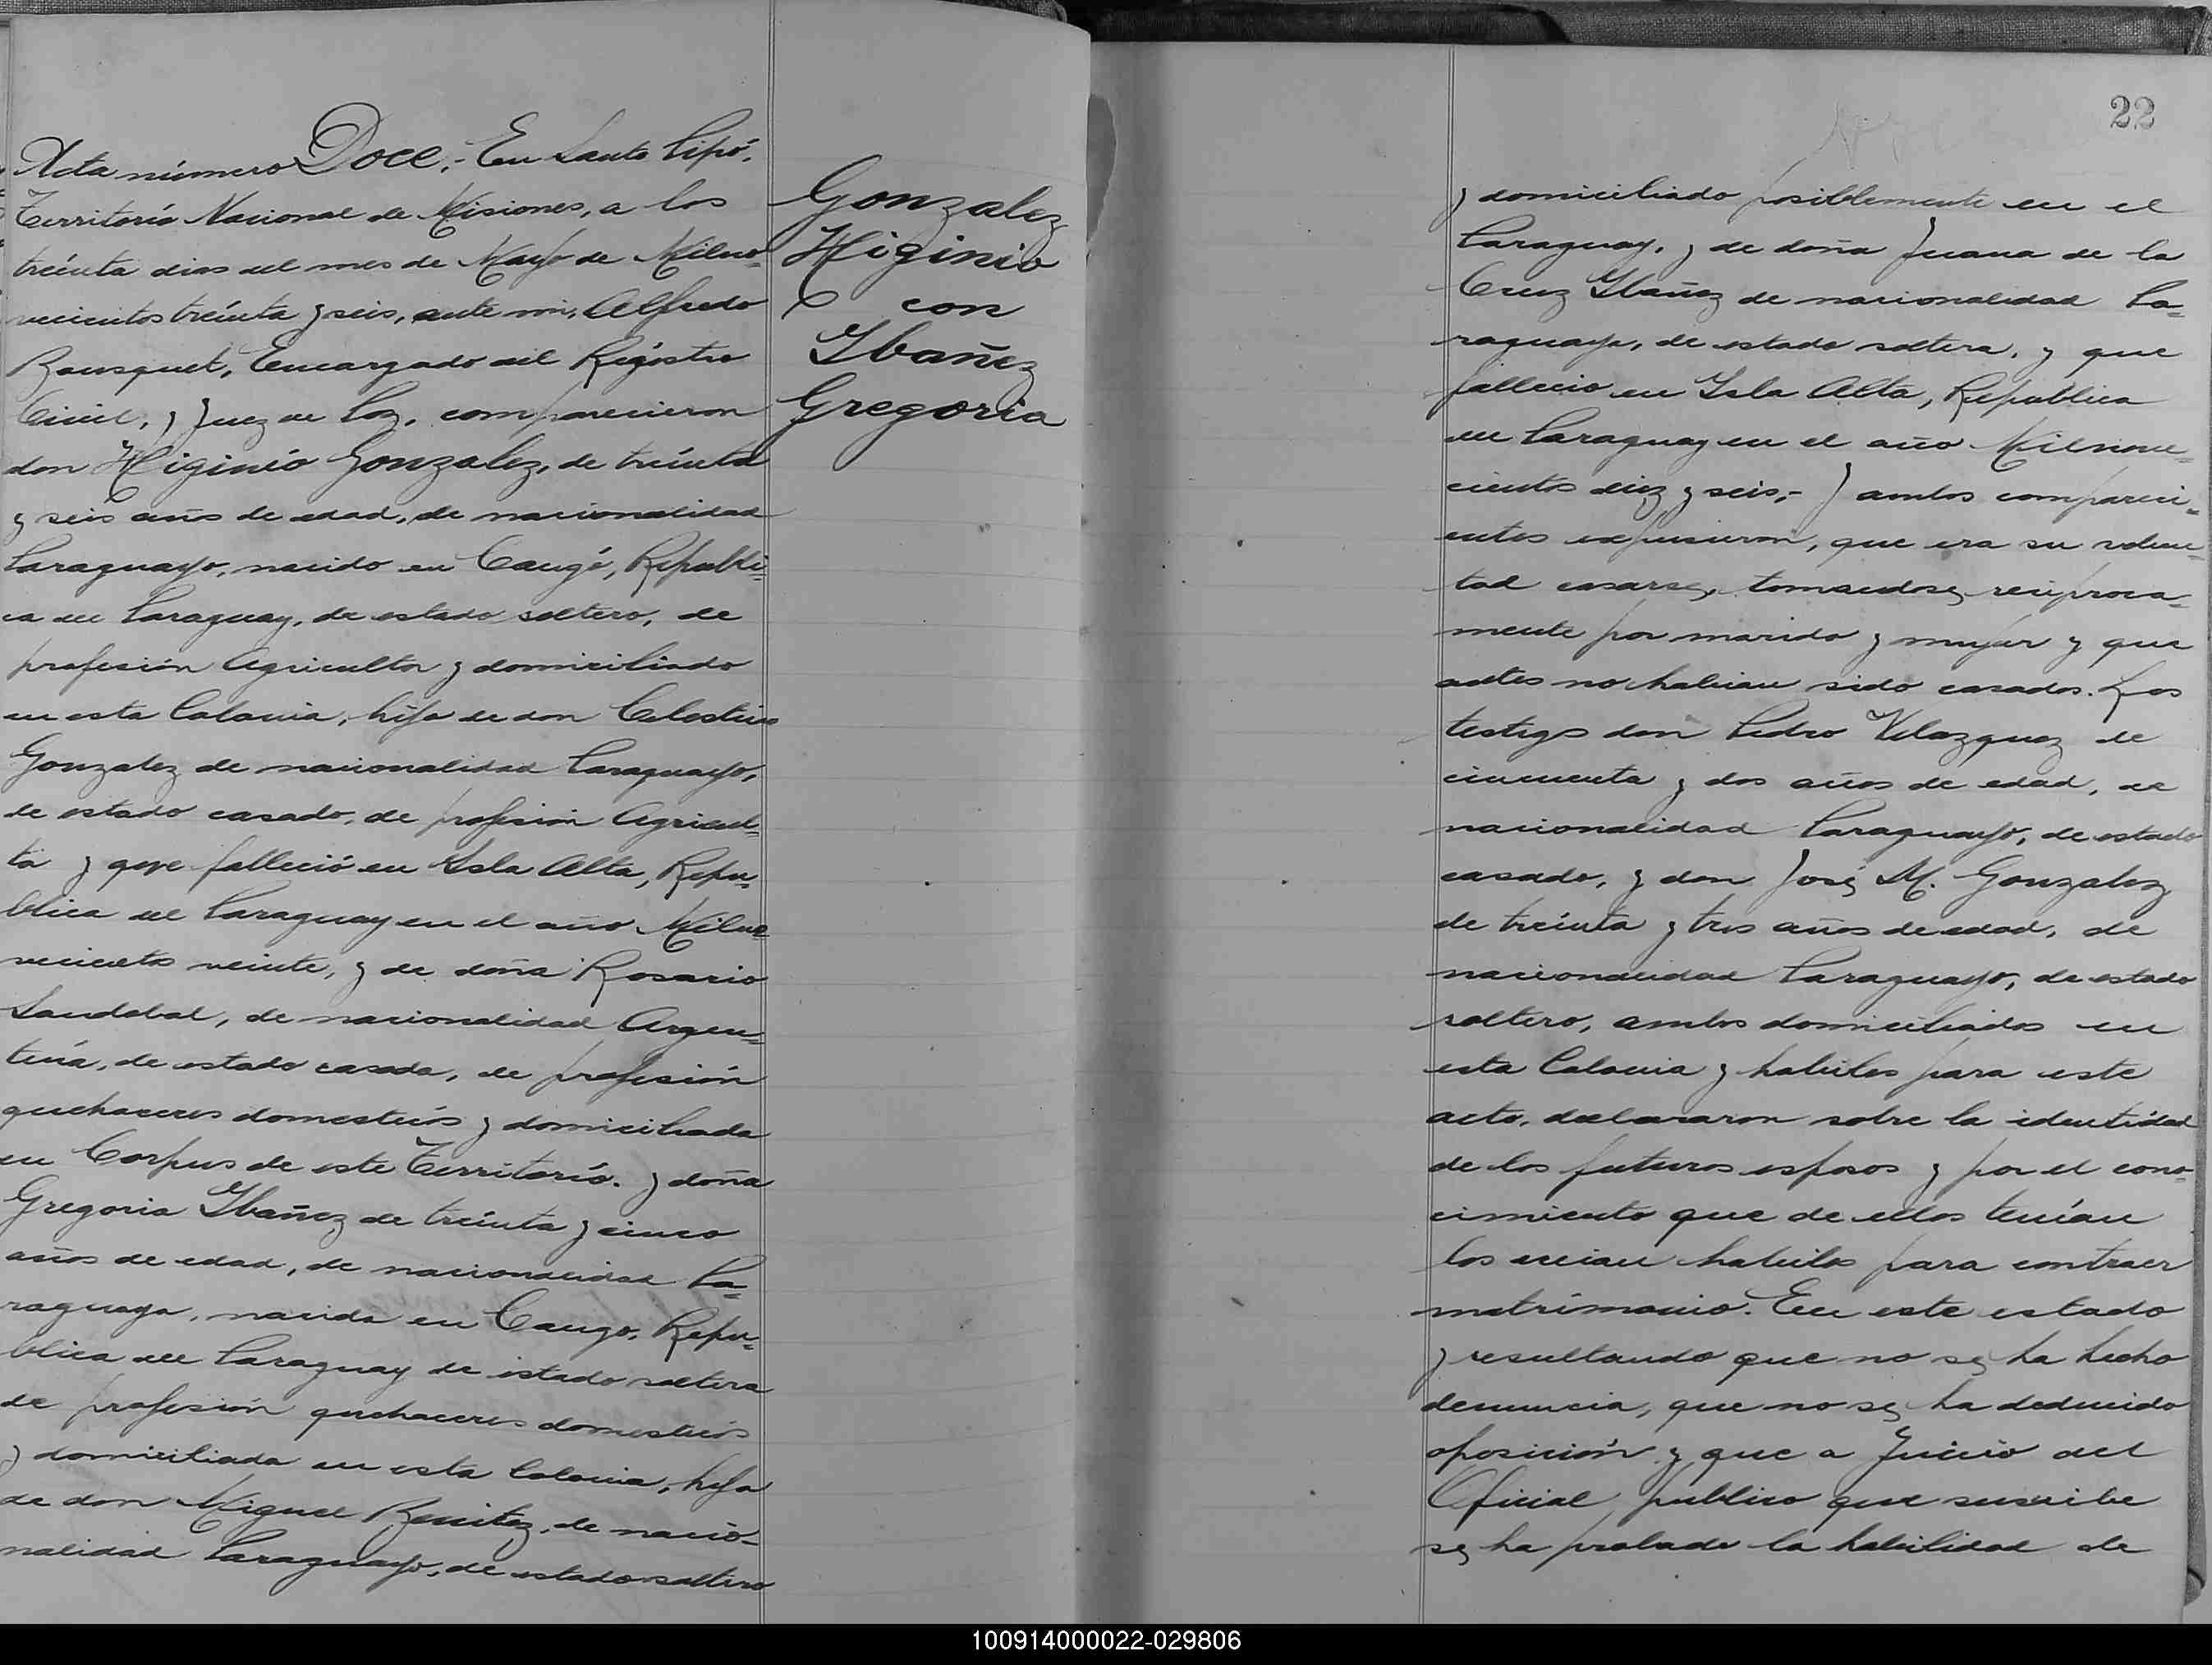 Acta número Doce.- En Santo Pipó,
Territorio Nacional de Misiones, a los
treinta dias del mes de Mayo de Milno=
vecientos treinta y seis, ante mi, Alfredo
Bousquet, Encargado del Registro
Civil, y Juez de Paz, comparecieron
don Higinio Gonzalez, de treinta
y seis años de edad, de nacionalidad
Paraguayo, nacido en Caugó, Republi=
ca del Paraguay, de estado soltero, de
profesión Agricultor y domiciliado
en esta Colonia, hijo de don Celestino
Gonzalez de nacionalidad Paraguayo,
de estado casado, de profesion Agricul=
tor y que falleció en Isla Alta, Repu=
blica del Paraguay en el año Milno
vecientos veinte, y de doña Rosario
Sandobal, de nacionalidad Argen=
tina, de estado casada, de profesión
quehaceres domesticos y domiciliada
en Corpus de este Territorio. y doña
Gregoria Ybañez de treinta y cinco
años de edad, de nacionalidad Pa=
raguaya, nacida en Caugo, Repu=
blica del Paraguay de estado soltera
de profesión quehaceres domesticos
y domiciliada en esta Colonia, hija
de don Miguel Benitez, de nacio-
nalidad Paraguayo, de estado soltero
Gonzalez
Higinio
con
Ybañez
Gregoria
22
y domiciliado posiblemente en el
Paraguay, y de doña Juana de la
Cruz Ybañez de nacionalidad Pa=
raguaya, de estado soltera, y que
fallecio en Isla Alta, Republica
del Paraguay en el año Milnove=
cientos diez y seis,- y ambos compareci=
entes expusieron, que era su volun=
tad casarse, tomandose reciproca=
mente por marido y mujer y que
antes no habian sido casados. Los
testigos don Pedro Velazquez de
cincuenta y dos años de edad, de
nacionalidad Paraguayo, de estado
casado, y don José M. Gonzalez
de treinta y tres años de edad, de
nacionalidad Paraguayo, de estado
soltero, ambos domiciliados en
esta Colonia y habiles para este
acto, declararon sobre la identidad
de los futuros esposos y por el cono=
cimiento que de ellos tenían
los creian habiles para contraer
matrimonio. En este estado
y resultando que no se ha hecho
denuncia, que no se ha deducido
oposición y que a Juicio del
Oficial publico que suscribe
se ha probado la habilidad de
100914000022-029806